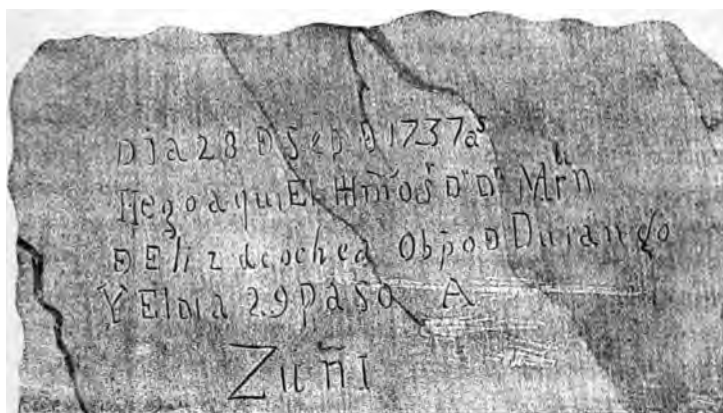 DIa 28 Đ Sep Đ 1737 aˢ
llego aqui El Illm̃o Sʳ Dʳ Dⁿ Mrñ
Đ Elizaeochea Obp̃o Đ Durango
Y El DIa 29 paso A
Zuñi